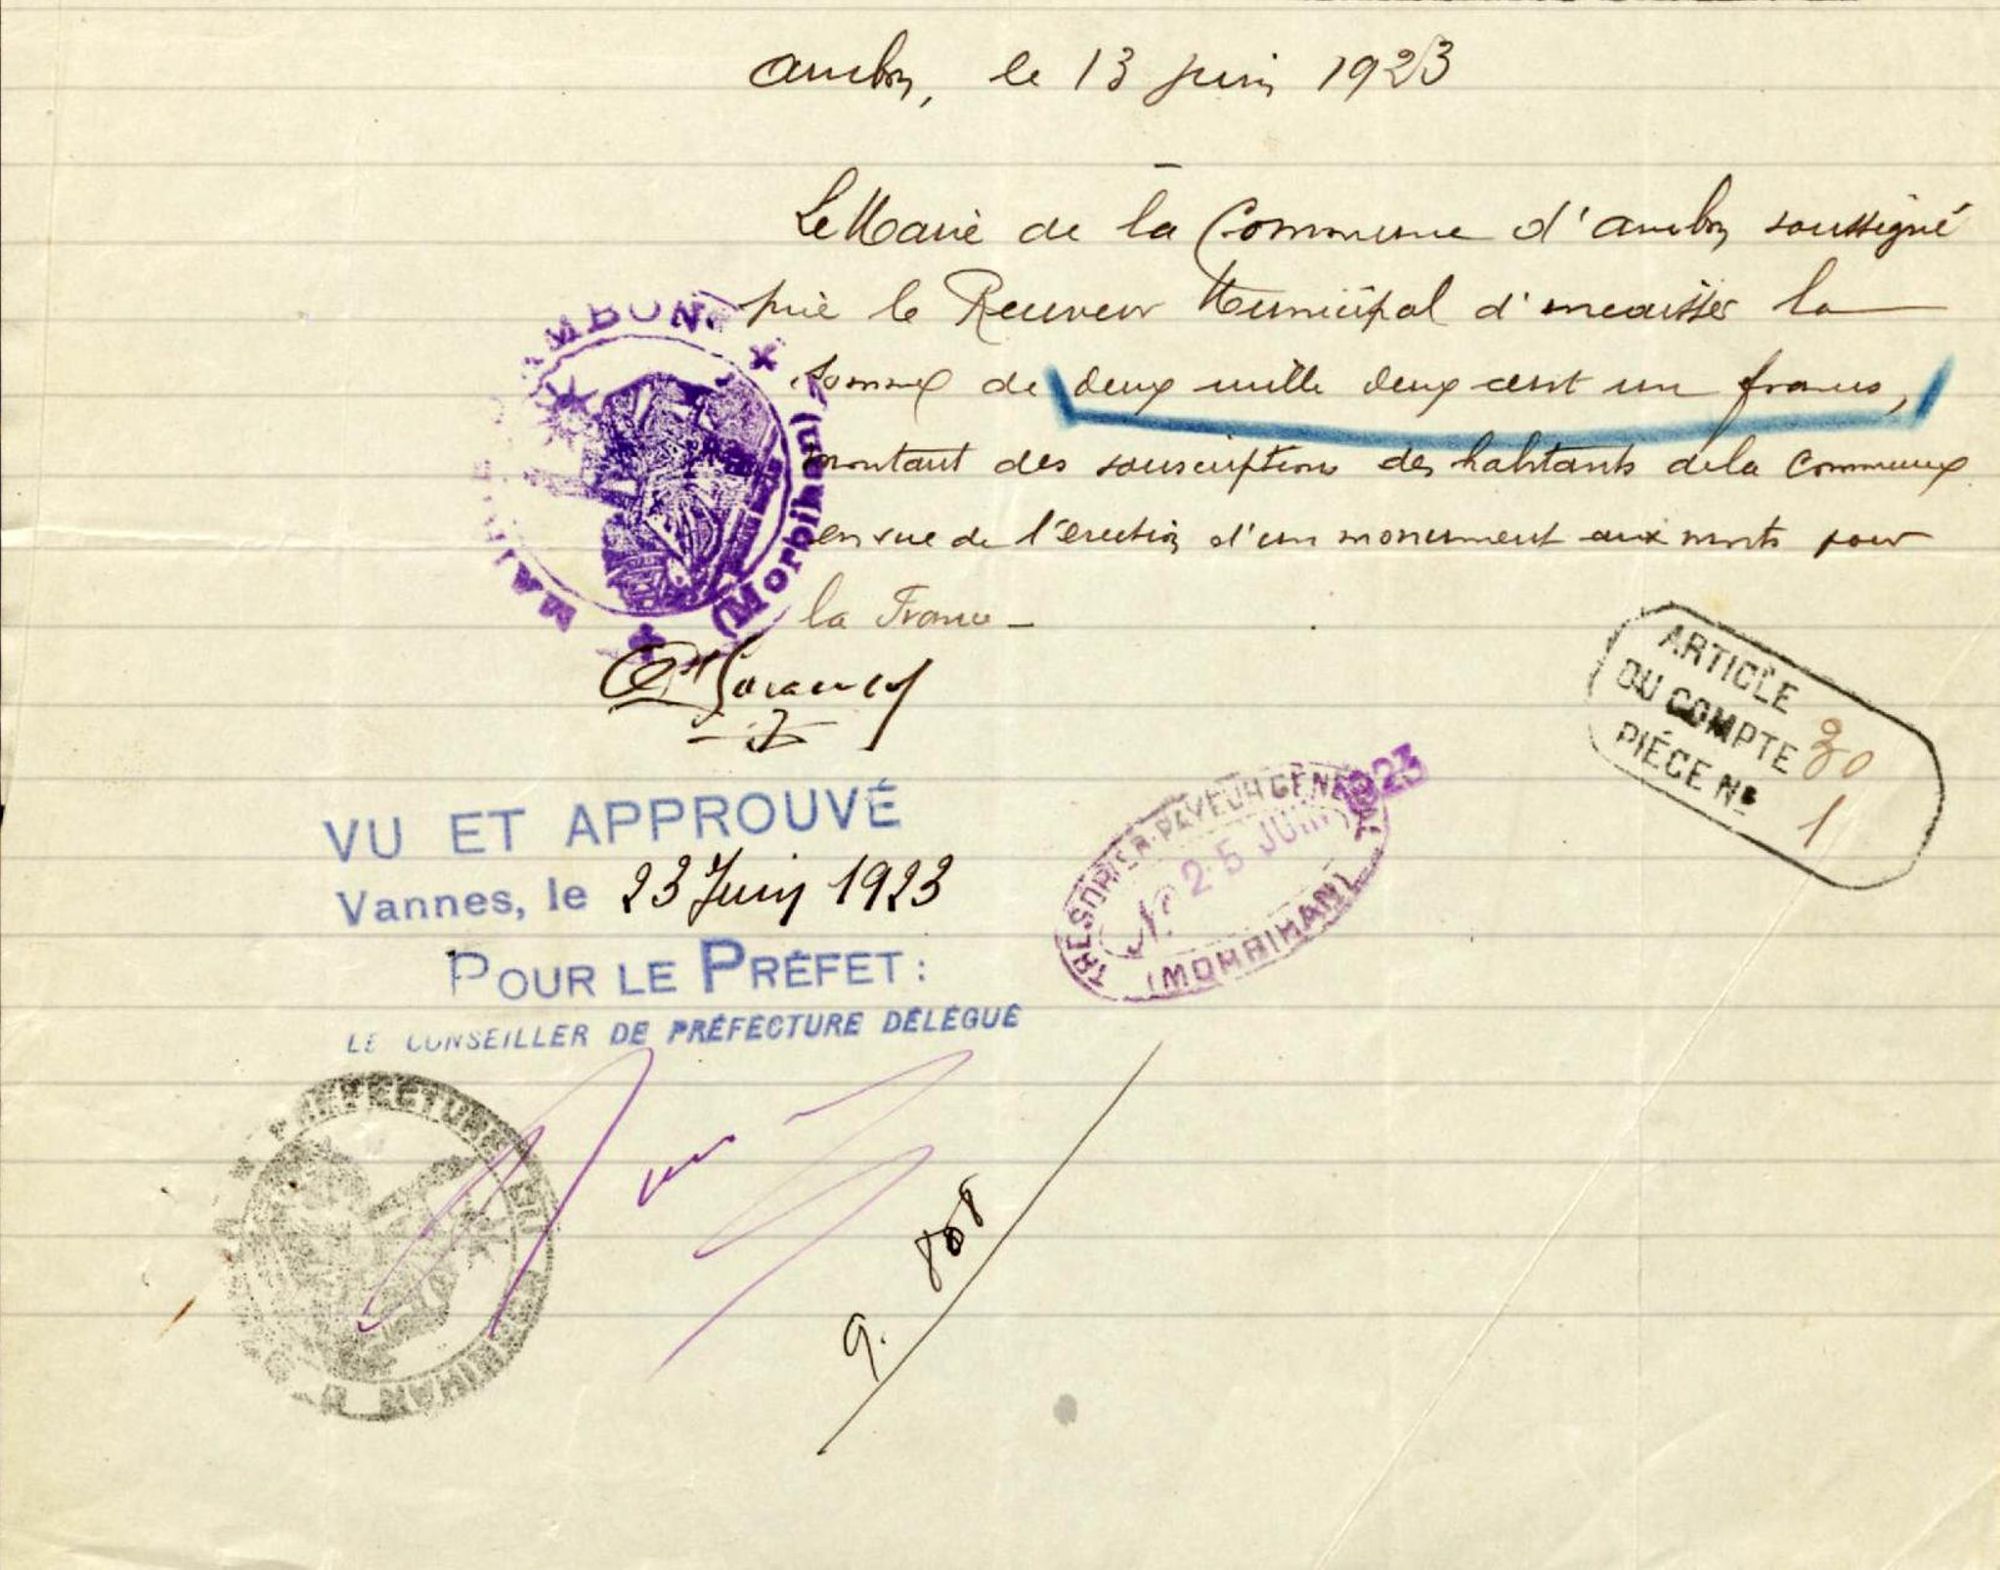 Ambon, le 13 juin 1923
Le Maire de la Commune d'Ambon soussigné
prie le Receveur Municipal d'encaisser la
somme de deux mille deux cent un francs,
montant des souscriptions des habitants de la Commune
en vue de l'érection d'un monument aux morts pour
la France -
MAIRIE D'AMBON
(Morbihan)
ARTICLE
DU COMPTE 30
PIÉCE No 1
VU ET APPROUVÉ
Vannes, le 23 Juin 1923
POUR LE PRÉFET :
LE CONSEILLER DE PRÉFECTURE DÉLÉGUÉ
TRÉSORIER-PAYEUR GÉNÉRAL
25 JUIN 1923
(MORBIHAN)
PRÉFECTURE DU MORBIHAN